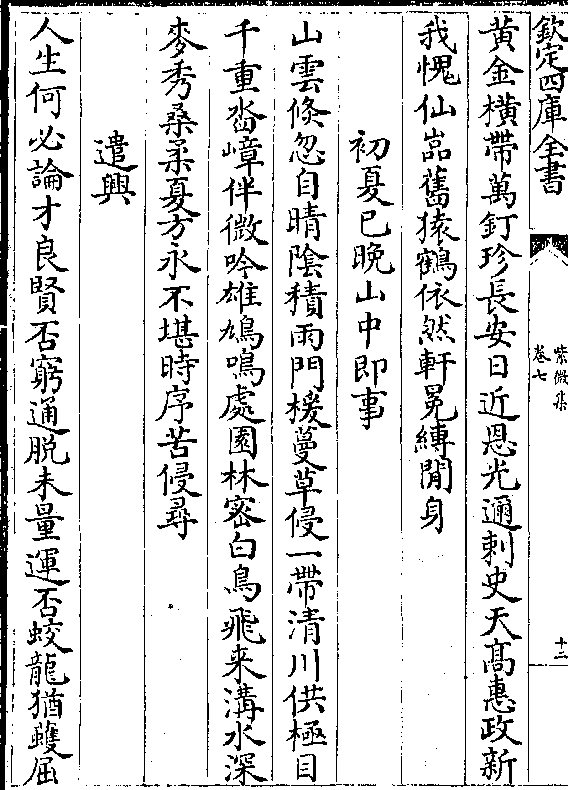 欽定四庫全書
紫微集
卷七
十二
黃金横帶萬釘珍長安日近恩光邇刺史天髙惠政新
我愧仙嵓舊猿鶴依然軒冕縛閒身
初夏已晚山中即事
山雲倐忽自晴隂積雨門援蔓草侵一帶清川供極目
千重沓嶂伴微吟雄鳩鳴處園林密白鳥飛来溝水深
麥秀桑柔夏方永不堪時序苦侵尋
遣興
人生何必論才良賢否窮通脱未量運否蛟龍猶蠖屈